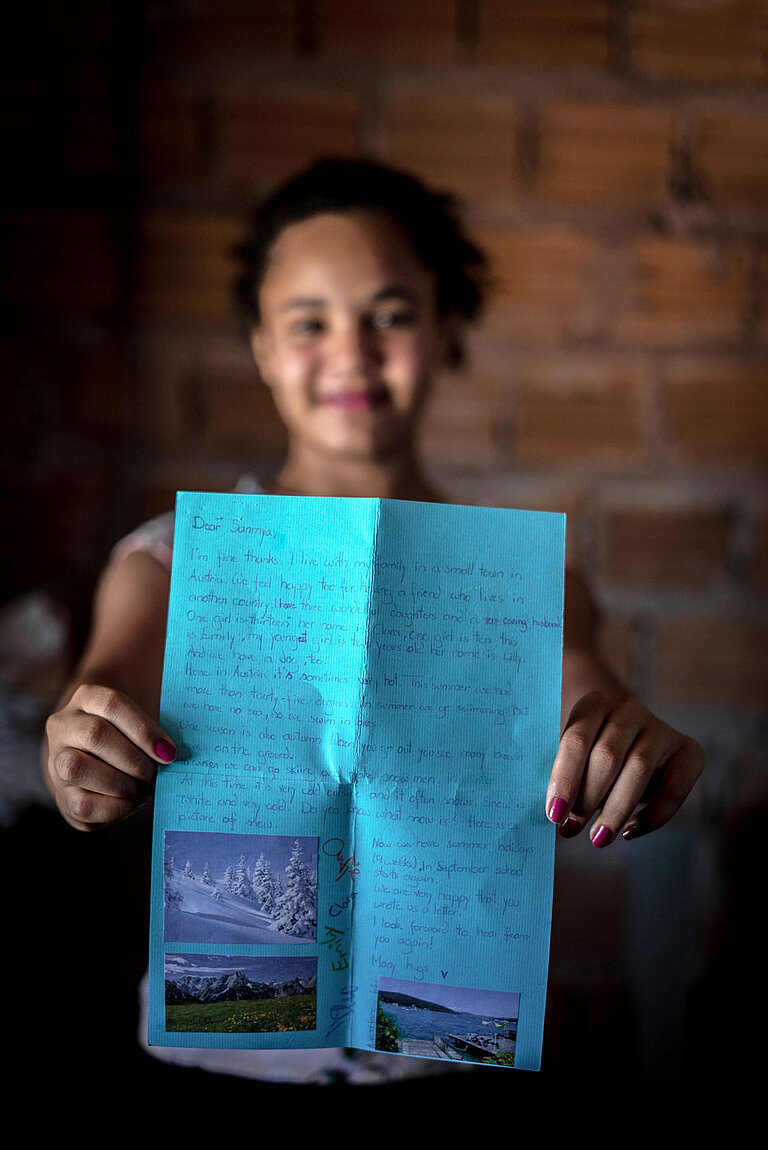 Dear Sanmya,
I'm fine thanks. I live with my family in a small town in
Austria. We feel happy too for having a friend who lives in
another country. I have three wonderful daughters and a very caring husband.
One girl is thirteen her name is Clara, one girl is ten this
is Emily, my youngest girl is years old her name is Lilly.
And we have a dog, too.
Here in Austria it's sometimes very hot. This summer we had
more than thirty-five degrees. In summer we go swimming. But
we have no sea, so we swim in lakes.
One season is also autumn. When you go out you see many brown
leaves on the ground.
In winter when we can go skiing or make snow men.
At this time it's very cold and it often snows. Snow is
white and very cold! Do you know what snow is? Here is a
picture of snow.
Now we have summer holidays
(9 weeks). In September school
starts again.
We are very happy that you
wrote us a letter.
I look forward to hear from
you again!
Many hugs
Clara
Emily